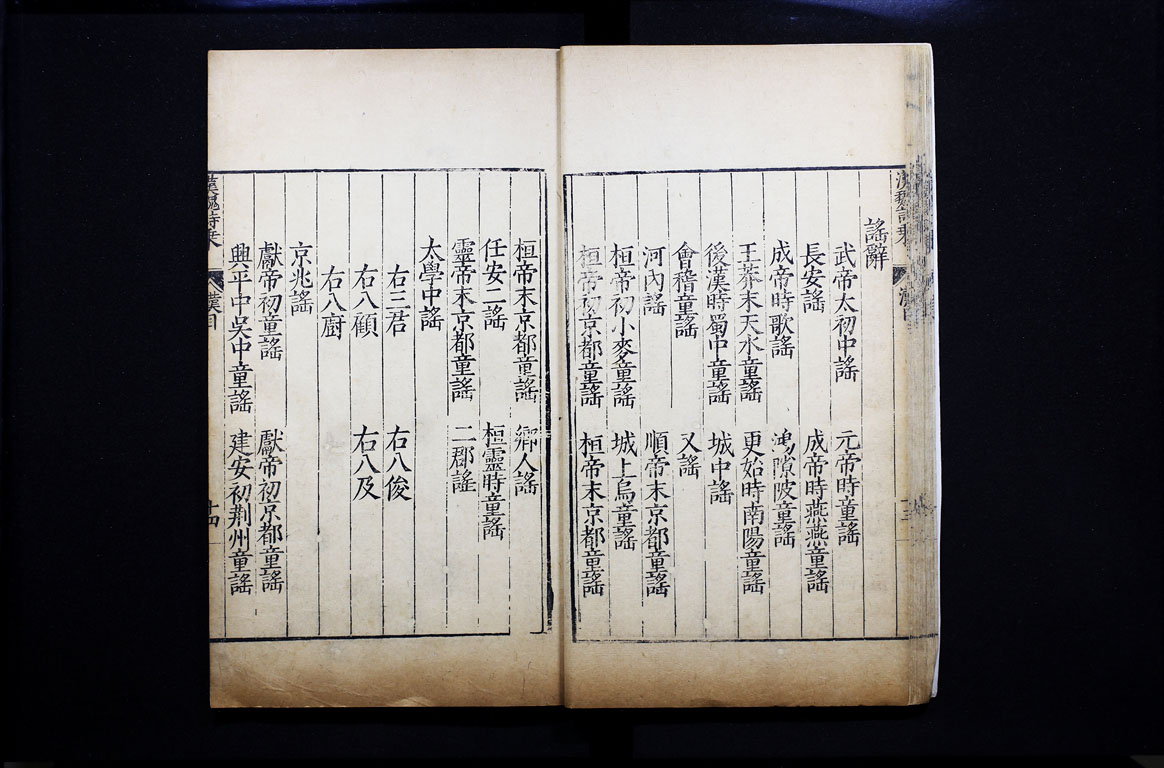 謠辭
武帝太初中謠　元帝時童謠
長安謠　成帝時燕燕童謠
成帝時歌謠　鴻隙陂童謠
王莽末天水童謠　更始時南陽童謠
後漢時蜀中童謠　城中謠
會稽童謠　又謠
河內謠　順帝末京都童謠
桓帝初小麥童謠　城上烏童謠
桓帝初京都童謠　桓帝末京都童謠
桓帝末京都童謠　鄉人謠
任安二謠　桓靈時童謠
靈帝末京都童謠　二郡謠
太學中謠
右三君　右八俊
右八顧　右八及
右八廚
京兆謠
獻帝初童謠　獻帝初京都童謠
興平中吳中童謠　建安初荊州童謠
漢魏詩乘　漢目　十四